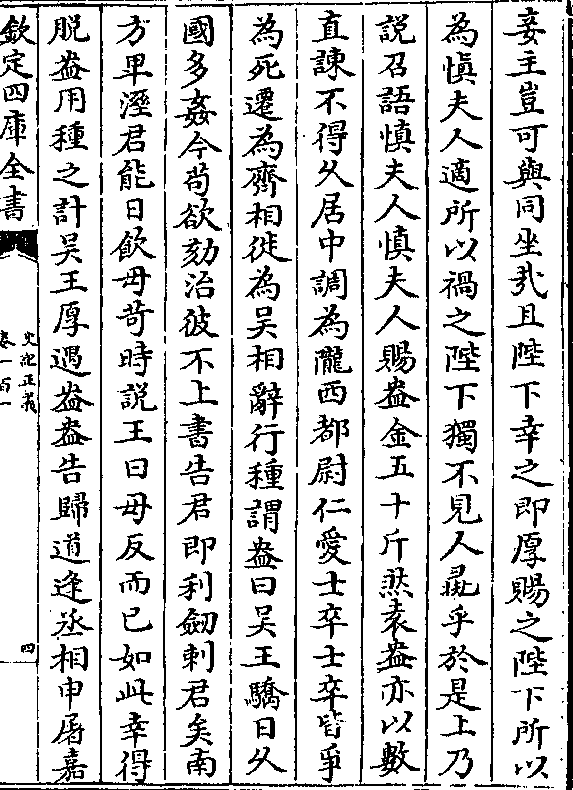 妾主豈可與同坐哉且陛下幸之即厚賜之陛下所以
為慎夫人適所以禍之陛下獨不見人彘乎於是上乃
説召語慎夫人慎夫人賜盎金五十斤然袁盎亦以數
直諫不得久居中調為隴西都尉仁愛士卒士卒皆爭
為死遷為齊相徙為吴相辭行種謂盎曰吴王驕日久
國多姦今苟欲劾治彼不上書告君即利劒刺君矣南
方卑溼君能日飲毋苛時説王曰毋反而已如此幸得
脱盎用種之計吴王厚遇盎盎告歸道逢丞相申屠嘉
欽定四庫全書
史記正義
卷一百一
四